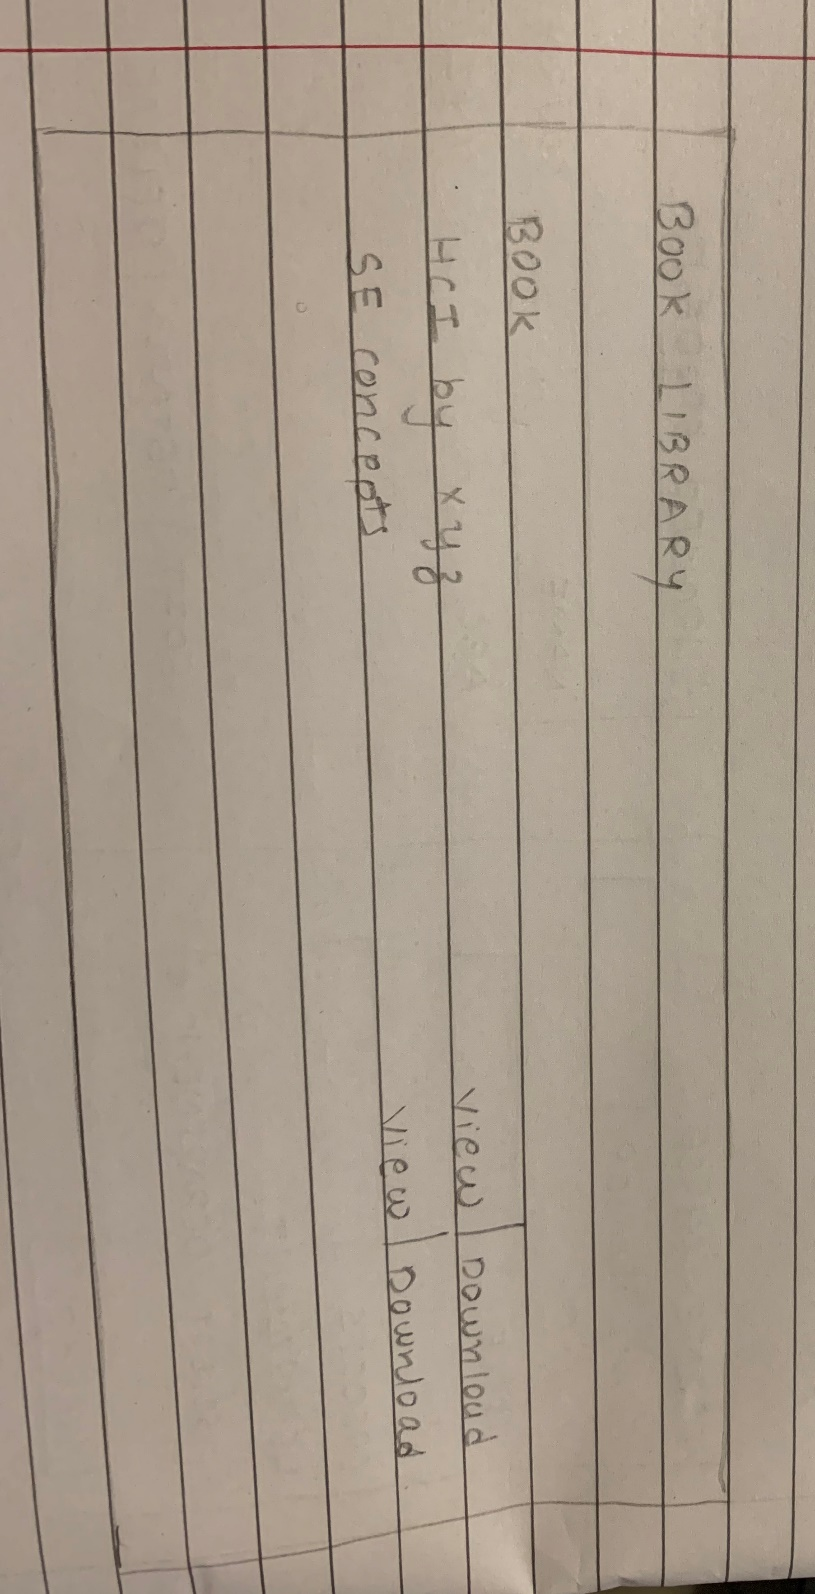 BOOK LIBRARY
BOOK
HCI by xyz View | Download
SE concepts View | Download